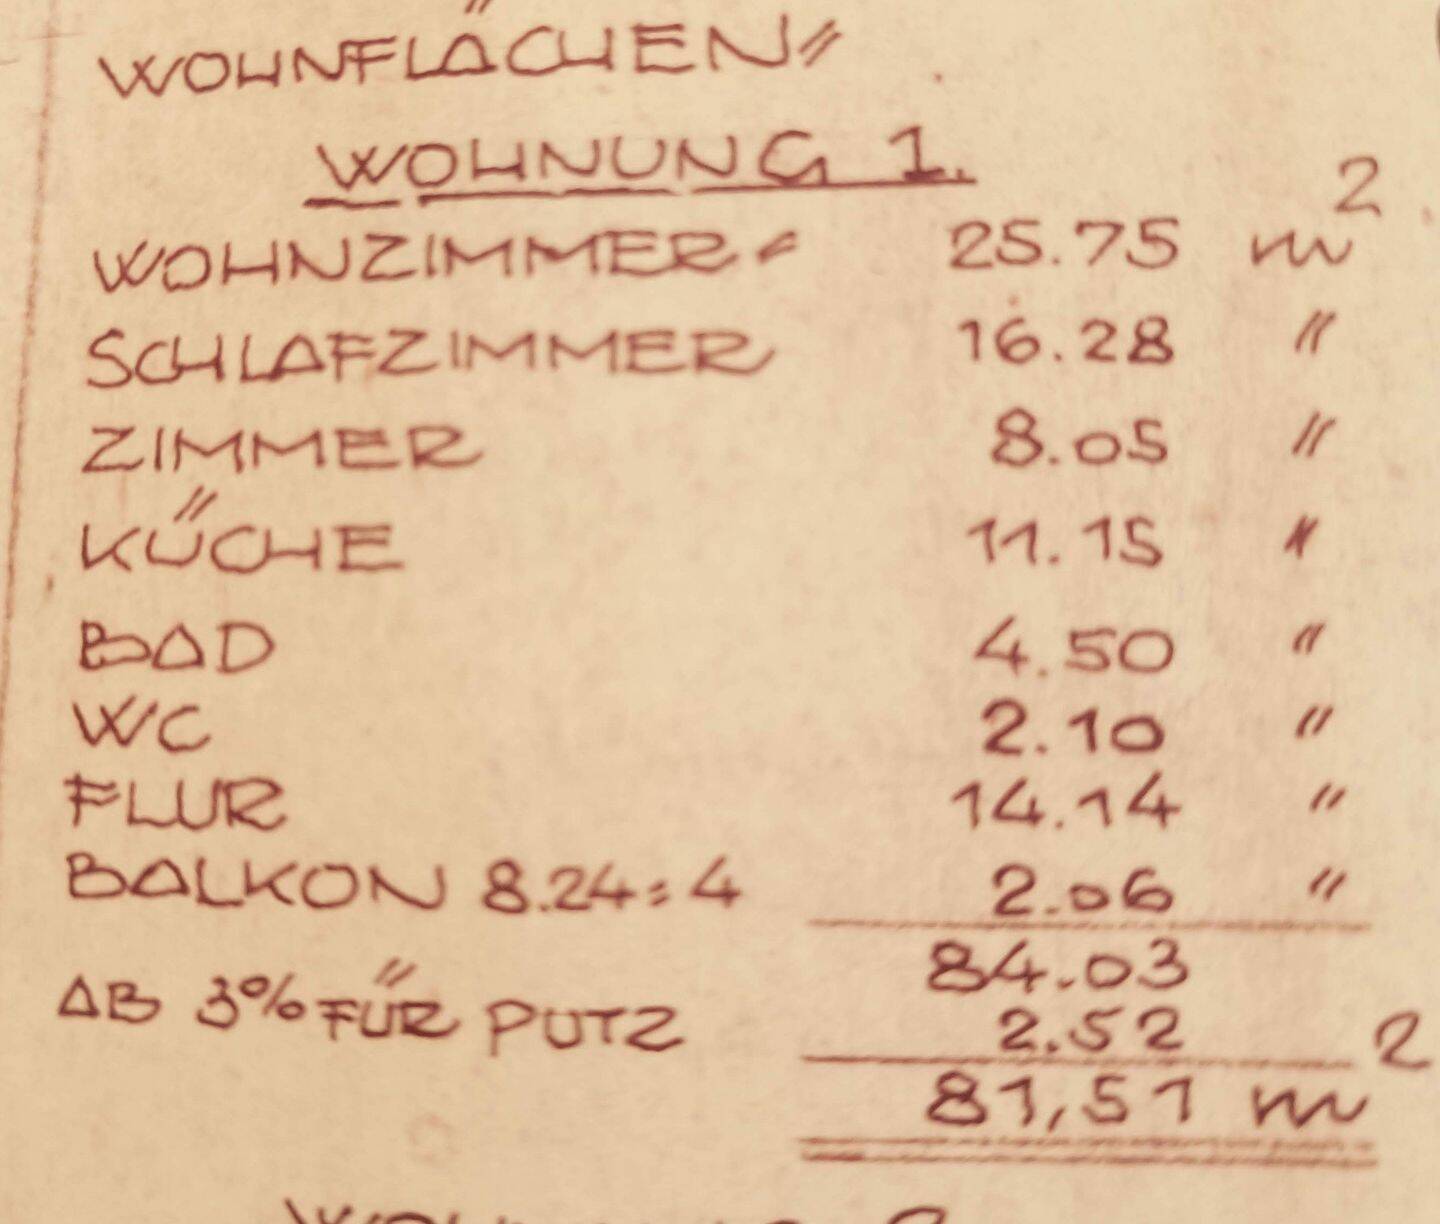 WOHNFLÄCHEN
WOHNUNG 1.
WOHNZIMMER 25.75 m²
SCHLAFZIMMER 16.28 "
ZIMMER 8.05 "
KÜCHE 11.15 "
BAD 4.50 "
WC 2.10 "
FLUR 14.14 "
BALKON 8.24:4 2.06 "
84.03
AB 3% FÜR PUTZ 2.52
81,51 m²